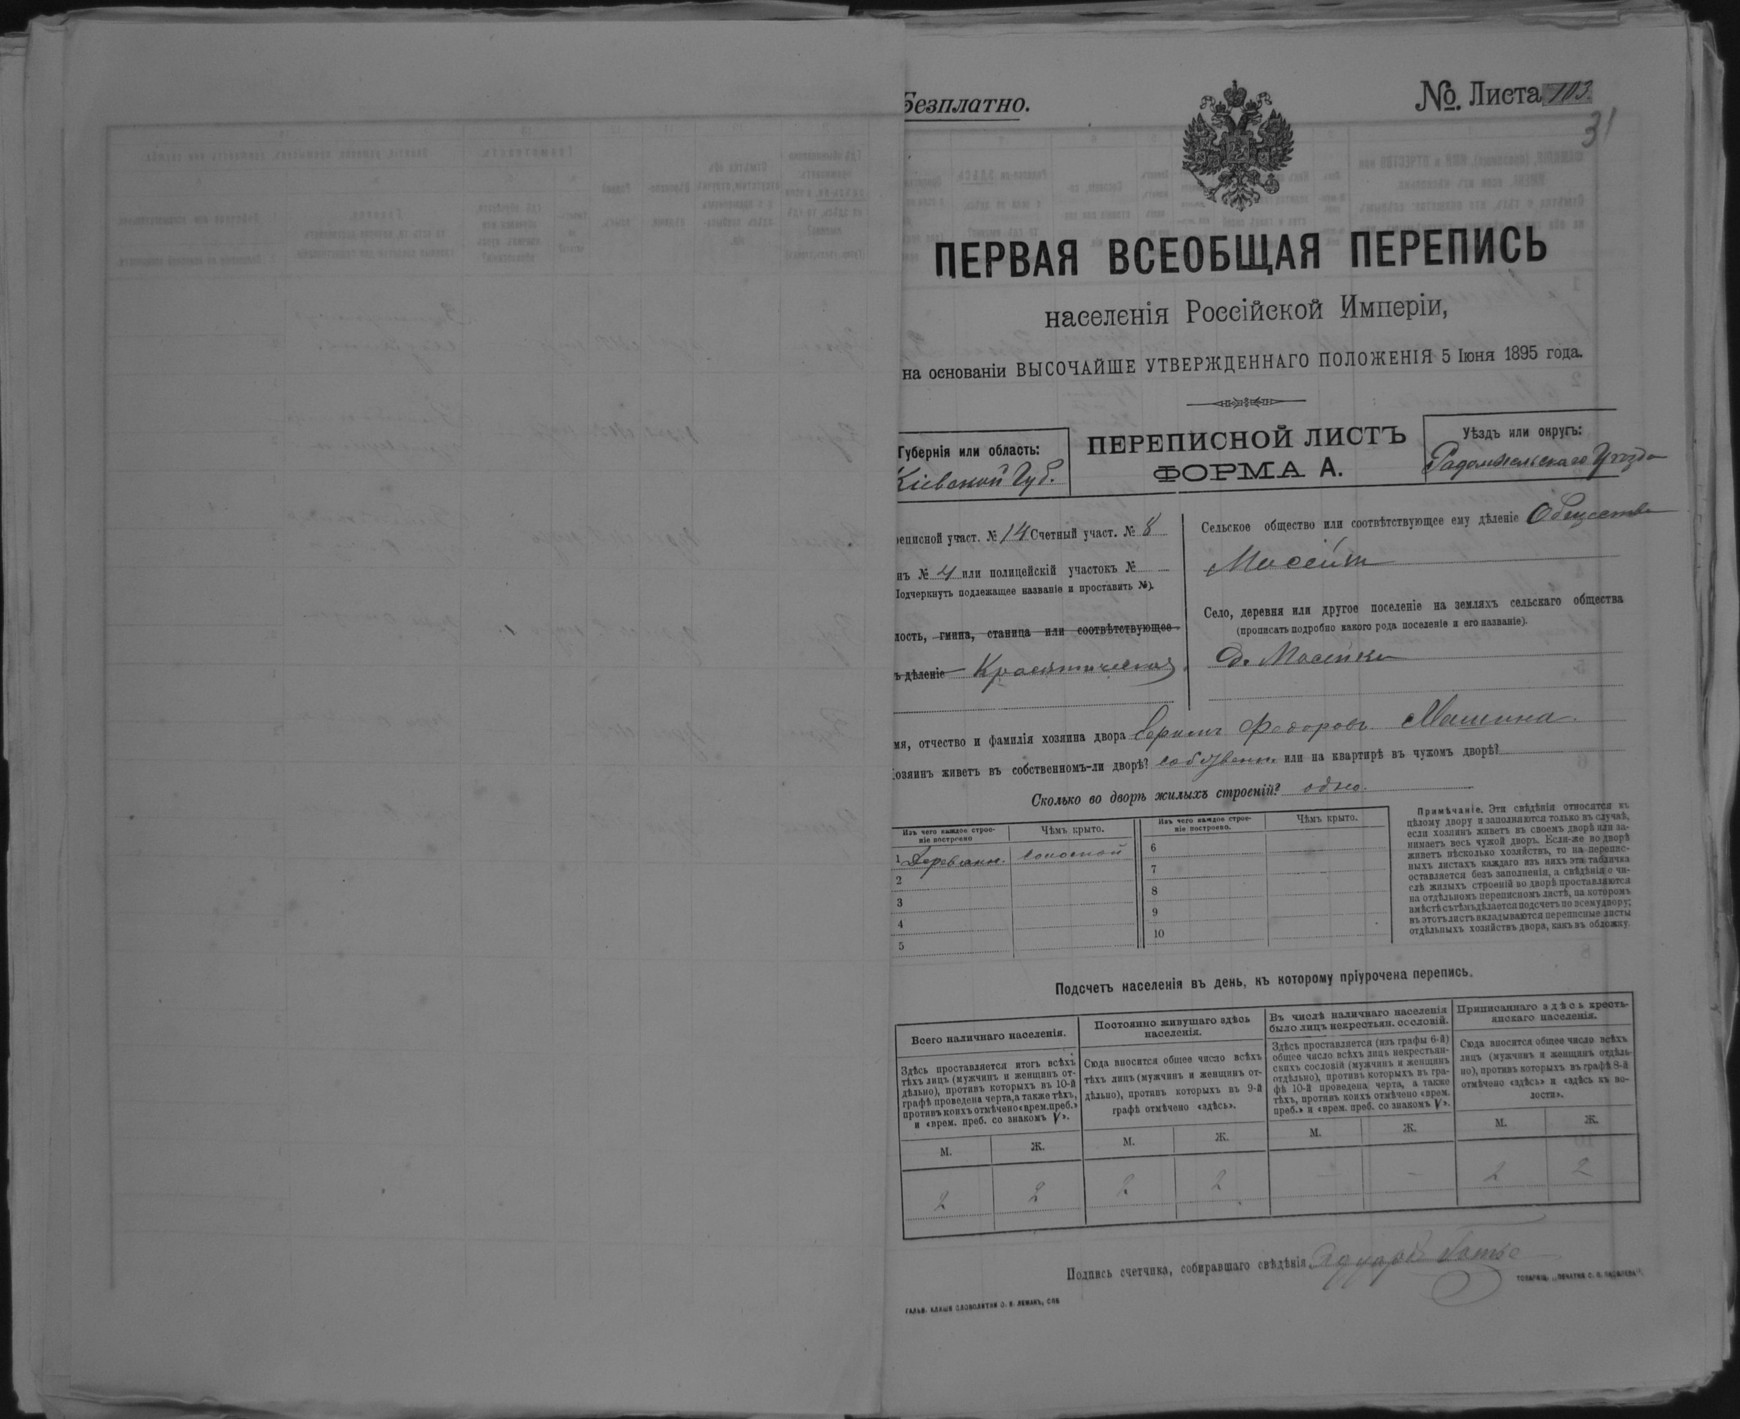 Безплатно.
№. Листа 103.
31
ПЕРВАЯ ВСЕОБЩАЯ ПЕРЕПИСЬ
населенія Россійской Имперіи,
на основаніи ВЫСОЧАЙШЕ УТВЕРЖДЕННАГО ПОЛОЖЕНІЯ 5 Іюня 1895 года.
Губернія или область:
Кіевской Губ.
ПЕРЕПИСНОЙ ЛИСТЪ
ФОРМА А.
Уѣздъ или округъ:
Радомысльскаго Уѣзда
реписной участ. № 14 Счетный участ. № 8
нъ № 4 или полицейскій участокъ №
Подчеркнуть подлежащее названіе и проставить №).
лость, гмина, станица или соотвѣтствующее
ъ дѣленіе
Сельское общество или соотвѣтствующее ему дѣленіе Общество
Село, деревня или другое поселеніе на земляхъ сельскаго общества
(прописать подробно какого рода поселеніе и его названіе).
мя, отчество и фамилія хозяина двора Федоровъ
Хозяинъ живетъ въ собственномъ-ли дворѣ? собствен или на квартирѣ въ чужомъ дворѣ?
Сколько во дворѣ жилыхъ строеній? одно
Изъ чего каждое строе-
ніе построено
Чѣмъ крыто.
Изъ чего каждое строе-
ніе построено.
Чѣмъ крыто.
1 Деревянн. соломой
2
3
4
5
6
7
8
9
10
Примѣчаніе. Эти свѣдѣнія относятся къ
цѣлому двору и заполняются только въ случаѣ,
если хозяинъ живетъ въ своемъ дворѣ или за-
нимаетъ весь чужой дворъ. Если-же во дворѣ
живетъ нѣсколько хозяйствъ, то на перепис-
ныхъ листахъ каждаго изъ нихъ эта табличка
оставляется безъ заполненія, а свѣдѣнія о чи-
слѣ жилыхъ строеній во дворѣ проставляются
на отдѣльномъ переписномъ листѣ, на которомъ
вмѣстѣ съ тѣмъ дѣлается подсчетъ по всему двору;
въ этотъ листъ вкладываются переписные листы
отдѣльныхъ хозяйствъ двора, какъ въ обложку.
Подсчетъ населенія въ день, къ которому пріурочена перепись.
Всего наличнаго населенія.
Здѣсь проставляется итогъ всѣхъ
тѣхъ лицъ (мужчинъ и женщинъ от-
дѣльно), противъ которыхъ въ 10-й
графѣ проведена черта, а также тѣхъ,
противъ коихъ отмѣчено «врем. преб.»
и «врем. преб. со знакомъ V».
Постоянно живущаго здѣсь
населенія.
Сюда вносится общее число всѣхъ
тѣхъ лицъ (мужчинъ и женщинъ от-
дѣльно), противъ которыхъ въ 9-й
графѣ отмѣчено «здѣсь».
Въ числѣ наличнаго населенія
было лицъ некрестьян. сословій.
Здѣсь проставляется (изъ графы 6-й)
общее число всѣхъ лицъ некрестьян-
скихъ сословій (мужчинъ и женщинъ
отдѣльно), противъ которыхъ въ гра-
фѣ 10-й проведена черта, а также
тѣхъ, противъ коихъ отмѣчено «врем.
преб.» и «врем. преб. со знакомъ V».
Приписаннаго здѣсь кресть-
янскаго населенія.
Сюда вносится общее число всѣхъ
лицъ (мужчинъ и женщинъ отдѣль-
но), противъ которыхъ въ графѣ 8-й
отмѣчено «здѣсь» и «здѣсь къ во-
лости».
М. Ж. М. Ж. М. Ж. М. Ж.
2 2 2 2 - - 2 2
Подпись счетчика, собиравшаго свѣдѣнія